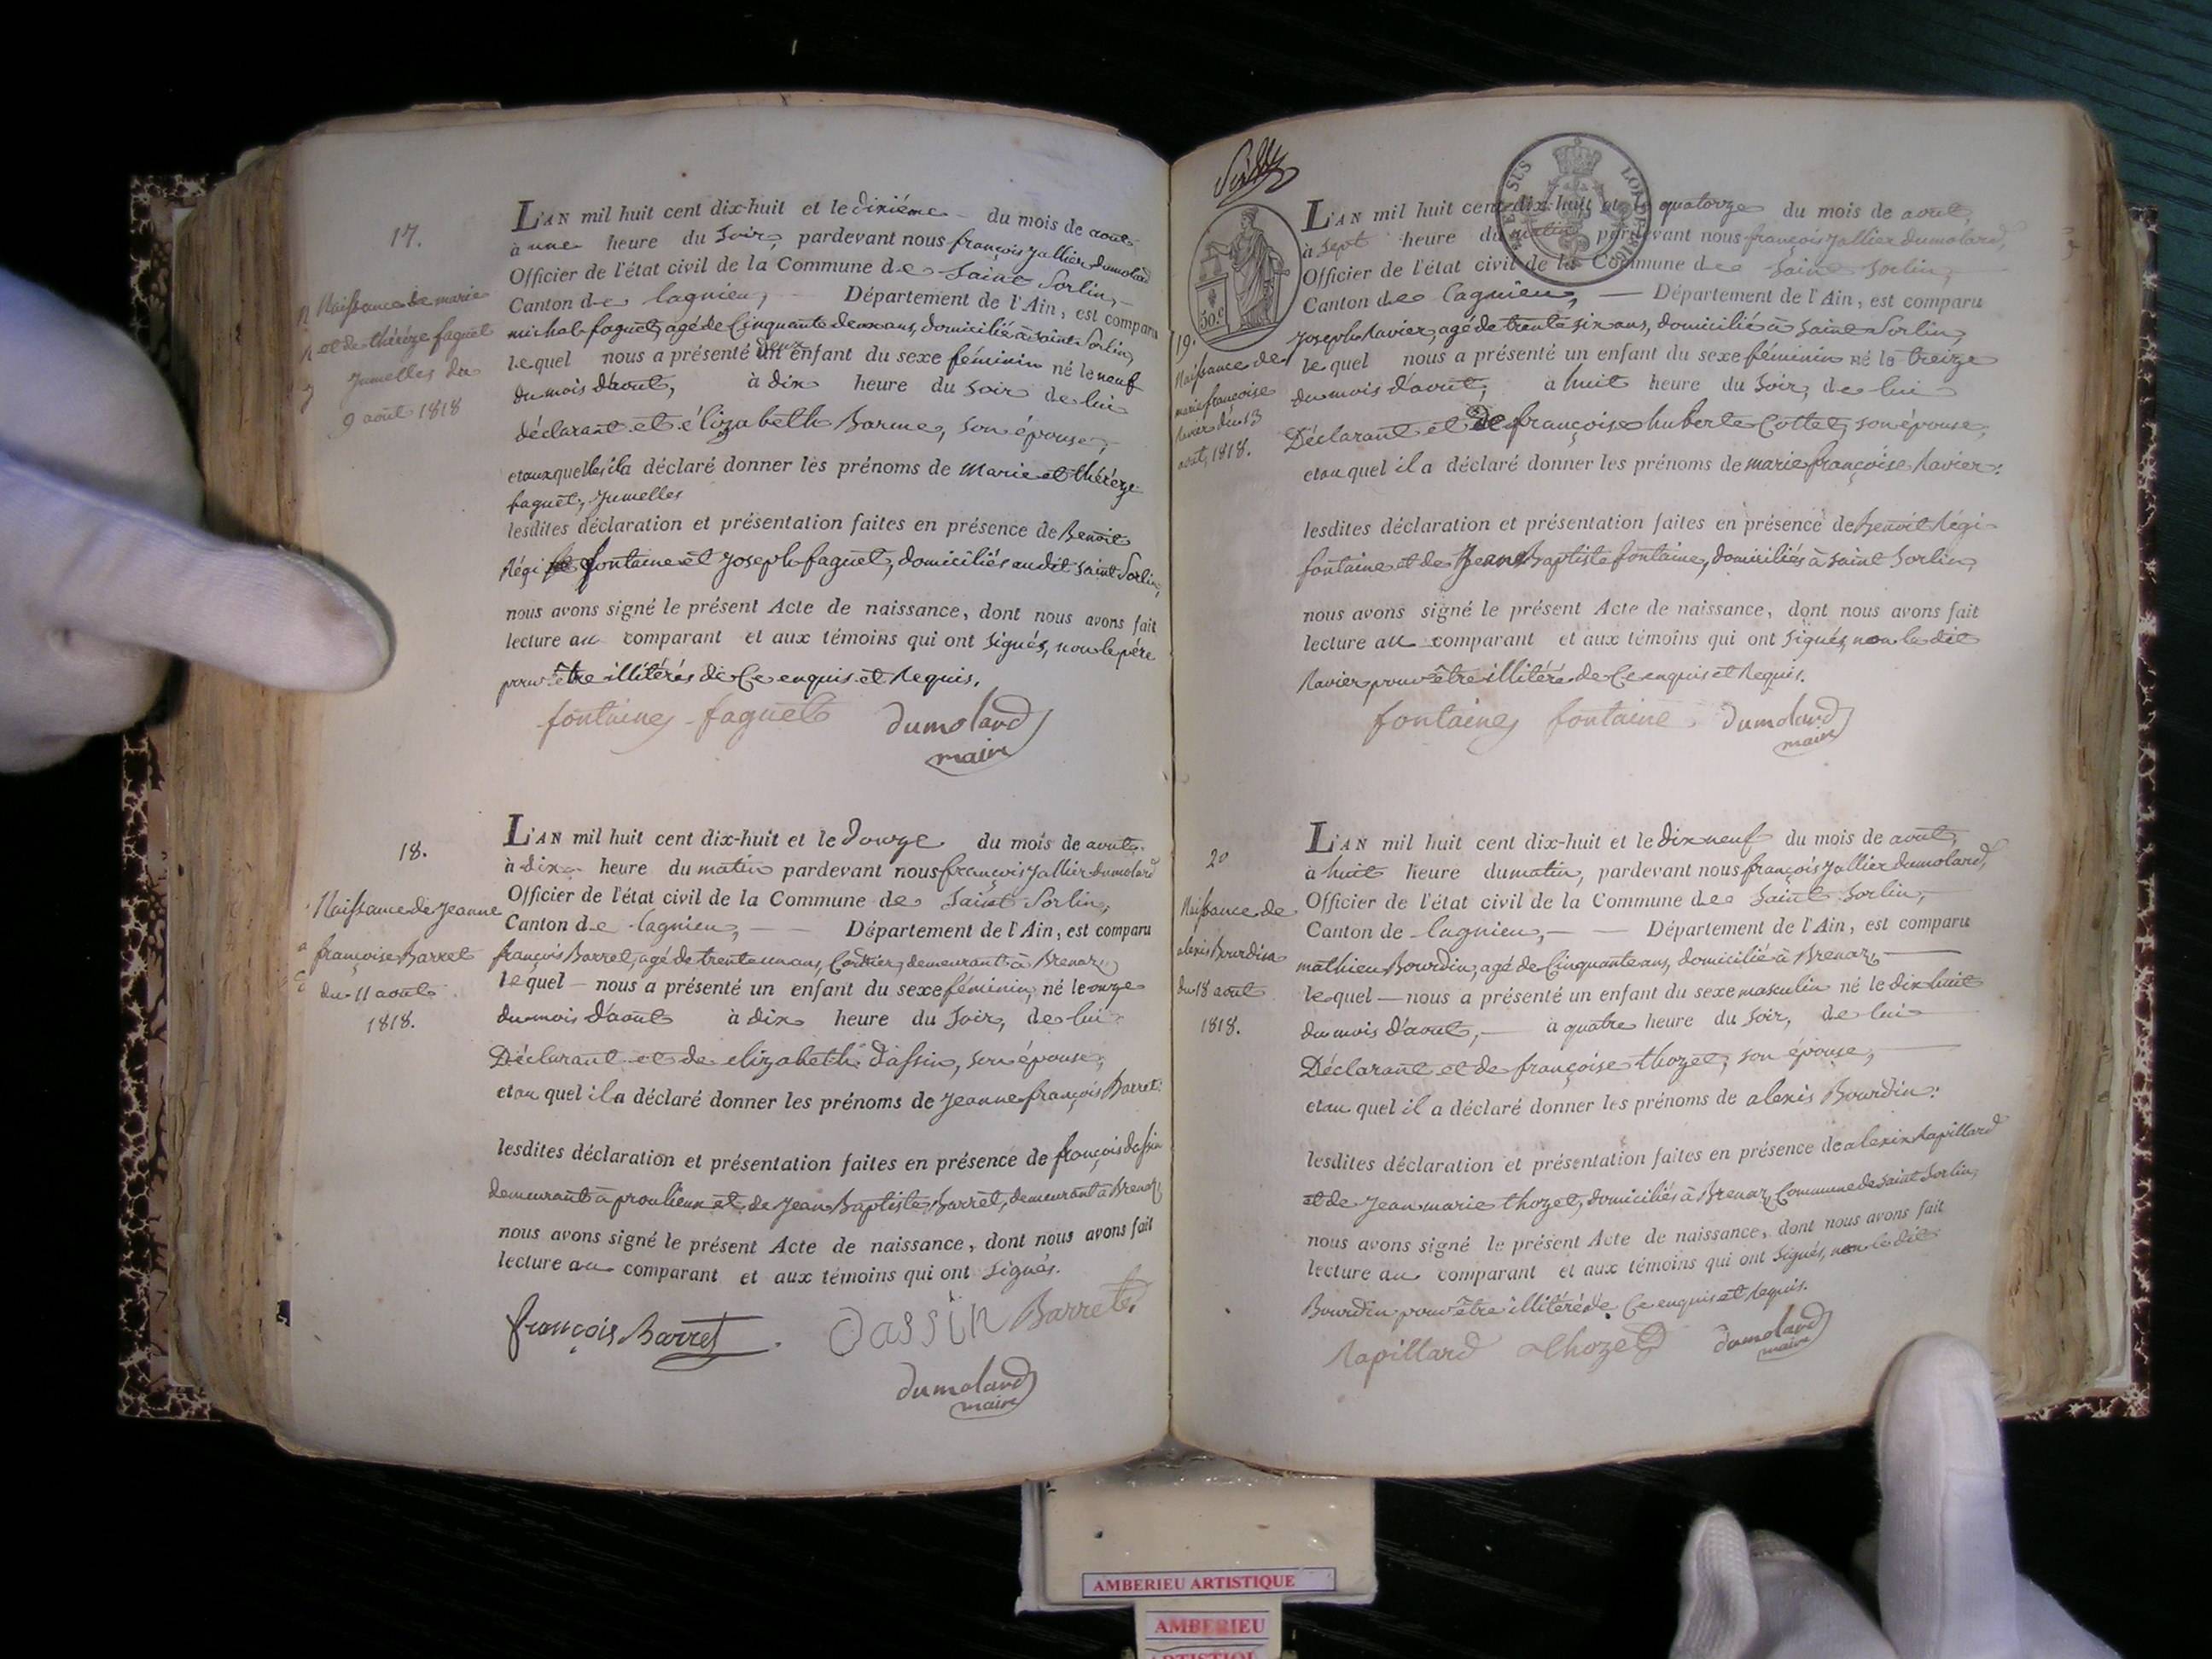 17.
Naissance de marie
et de thérèze faguet
jumelles du
9 août 1818
L'AN mil huit cent dix-huit et le dixiéme du mois de août
à une heure du Soir, pardevant nous françois jallier dumolard
Officier de l'état civil de la Commune de Saint Sorlin,
Canton de lagnieu, Département de l'Ain, est comparu
michel faguet, agé de Cinquante deux ans, domicilié à saint Sorlin,
lequel nous a présenté deux enfant du sexe féminin né le neuf
du mois d'août, à dix heure du soir de lui
déclarant et élizabeth Barme, son épouse,
et auxquelles il a déclaré donner les prénoms de Marie et thérèze
faguet, jumelles
lesdites déclaration et présentation faites en présence de Benoit
Régi fontaine et joseph faguet, domiciliés audit saint Sorlin,
nous avons signé le présent Acte de naissance, dont nous avons fait
lecture au comparant et aux témoins qui ont signés, non le pére
pour être illitérés de Ce enquis et Requis.
fontaine faguet dumolard
maire
18.
Naissance de jeanne
françoise Barret
du 11 août
1818.
L'AN mil huit cent dix-huit et le douze du mois de août
à dix heure du matin pardevant nous françois jallier dumolard
Officier de l'état civil de la Commune de Saint Sorlin,
Canton de lagnieu, Département de l'Ain, est comparu
françois Barret, agé de trente un ans, demeurant à Brenaz,
lequel nous a présenté un enfant du sexe féminin, né le onze
du mois d'août à dix heure du Soir, de lui
Déclarant et de elizabeth dassin, son épouse,
et au quel il a déclaré donner les prénoms de jeanne françois Barret
lesdites déclaration et présentation faites en présence de françois dassin
demeurant à proulieux et de jean Baptiste Barret, demeurant à Brenaz
nous avons signé le présent Acte de naissance, dont nous avons fait
lecture au comparant et aux témoins qui ont signés.
françois Barret Dassin Barret
dumolard
maire
SUS LO
50.c
19.
Naissance de
marie françoise
Ravier du 13
août, 1818.
L'AN mil huit cent dix-huit et le quatorze du mois de août,
à sept heure du matin pardevant nous françois jallier dumolard,
Officier de l'état civil de la Commune de Saint Sorlin,
Canton de lagnieu, Département de l'Ain, est comparu
joseph Ravier, agé de trente six ans, domicilié à Saint Sorlin,
lequel nous a présenté un enfant du sexe féminin né le treize
du mois d'août, à huit heure du Soir, de lui
Déclarant et De françoise huberte Cottet, son épouse,
et au quel il a déclaré donner les prénoms de marie françoise Ravier:
lesdites déclaration et présentation faites en présence de Benoit Régi
fontaine et de Jean Baptiste fontaine, domiciliés à Saint Sorlin,
nous avons signé le présent Acte de naissance, dont nous avons fait
lecture au comparant et aux témoins qui ont signés, non le dit
Ravier pour être illitéré de Ce enquis et Requis.
fontaine fontaine dumolard
maire
20
Naissance de
alexis Bourdin
du 18 août
1818.
L'AN mil huit cent dix-huit et le dix neuf du mois de août,
à huit heure du matin, pardevant nous françois jallier dumolard,
Officier de l'état civil de la Commune de Saint Sorlin,
Canton de lagnieu, Département de l'Ain, est comparu
mathieu Bourdin, agé de Cinquante ans, domicilié à Brenaz,
lequel nous a présenté un enfant du sexe masculin né le dix huit
du mois d'août, à quatre heure du Soir, de lui
Déclarant et de françoise thozet, son épouse,
et au quel il a déclaré donner les prénoms de alexis Bourdin:
lesdites déclaration et présentation faites en présence de alexis Rapillard
et de jean marie thozet, domiciliés à Brenaz Commune de Saint Sorlin,
nous avons signé le présent Acte de naissance, dont nous avons fait
lecture au comparant et aux témoins qui ont signés, non le dit
Bourdin pour être illitéré de Ce enquis et Requis.
Rapillard thozet dumolard
maire
AMBERIEU ARTISTIQUE
AMBERIEU
ARTISTIQUE